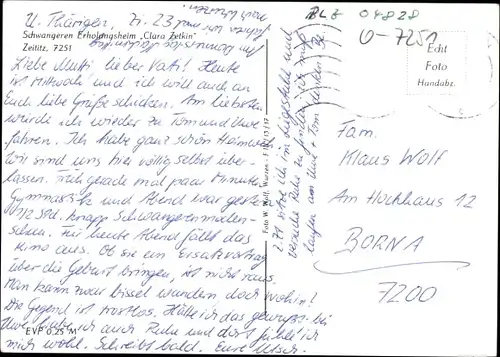 U. Thürigen, Zi. 23
Schwangeren Erholungsheim „Clara Zetkin"
Zeititz, 7251
BLZ 04828
O-7251
Echt
Foto
Handabz.
Liebe Mutti, lieber Vati! Heute
ist Mittwoch und ich will auch an
Euch liebe Grüße schicken. Am liebsten
würde ich wieder zu Tom und Uwe
fahren. Ich habe ganz schön Heimweh.
Wir sind uns hier völlig selbst über-
lassen. Früh gerade mal paar Minuten
Gymnastik und Abend war gestern
1/2 Std. knapp Schwangerenmalen-
schen. Für heute Abend fällt das
Kino aus. Ob sie ein Ersatzvortrag
über die Geburt bringen, ist nicht raus.
Man kann zwar bissel wandern, doch wohin!
Die Gegend ist trostlos. Hätte ich das gewußt - bei
Uwe habe ich auch Ruhe und dort fühle ich
mich wohl. Schreibt bald. Eure
EVP 0,25 M
Foto W. Wolf, Wurzen
Z. Zt. sitze ich im Liegestuhl und
versuche Ruhe zu finden, ich muß
laufen an Uwe + Tom denken.
Fam.
Klaus Wolf
Am Hochhaus 12
BORNA
7200